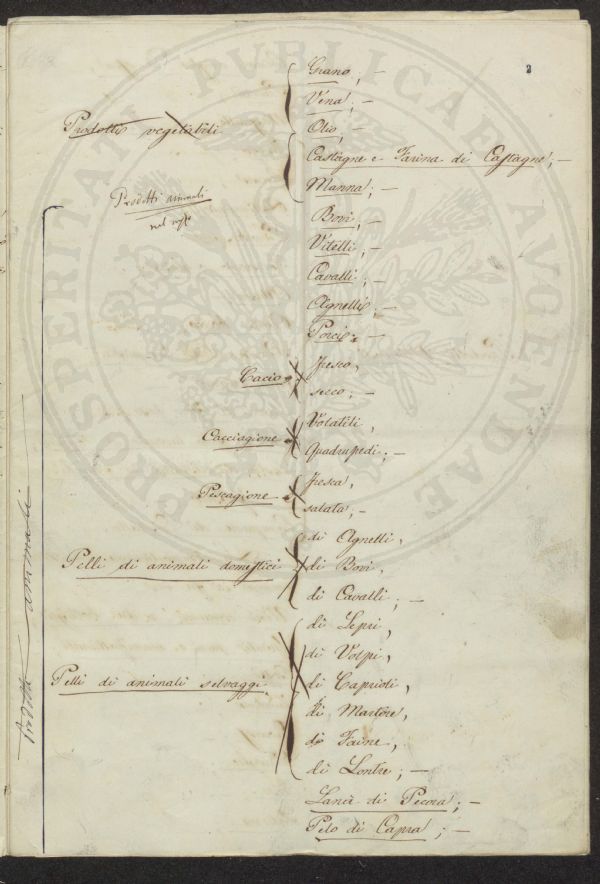 2
Grano, —
Vena, —
Prodotti vegetabili
Olio, —
Castagne e Farina di Castagne, —
Prodotti animali
Manna; —
Bovi, —
Vitelli, —
Cavalli; —
Agnelli; —
Porci; —
Cacio
fresco,
secco; —
Cacciagione
Volatili,
Quadrupedi; —
Pescagione
fresca,
salata; —
Pelli di animali domestici
di Agnelli,
di Bovi,
di Cavalli; —
Pelli di animali selvaggi
di Lepri,
di Volpi,
di Caprioli,
di Martore,
di Faine,
di Lontre; —
Lana di Pecora; —
Pelo di Capra; —
Prodotti animali
PROSPERITATI PUBLICAE AVOENDAE